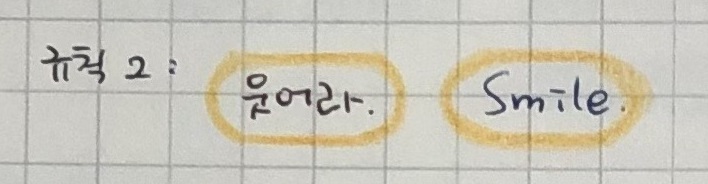 규칙 2: 웃어라. Smile.